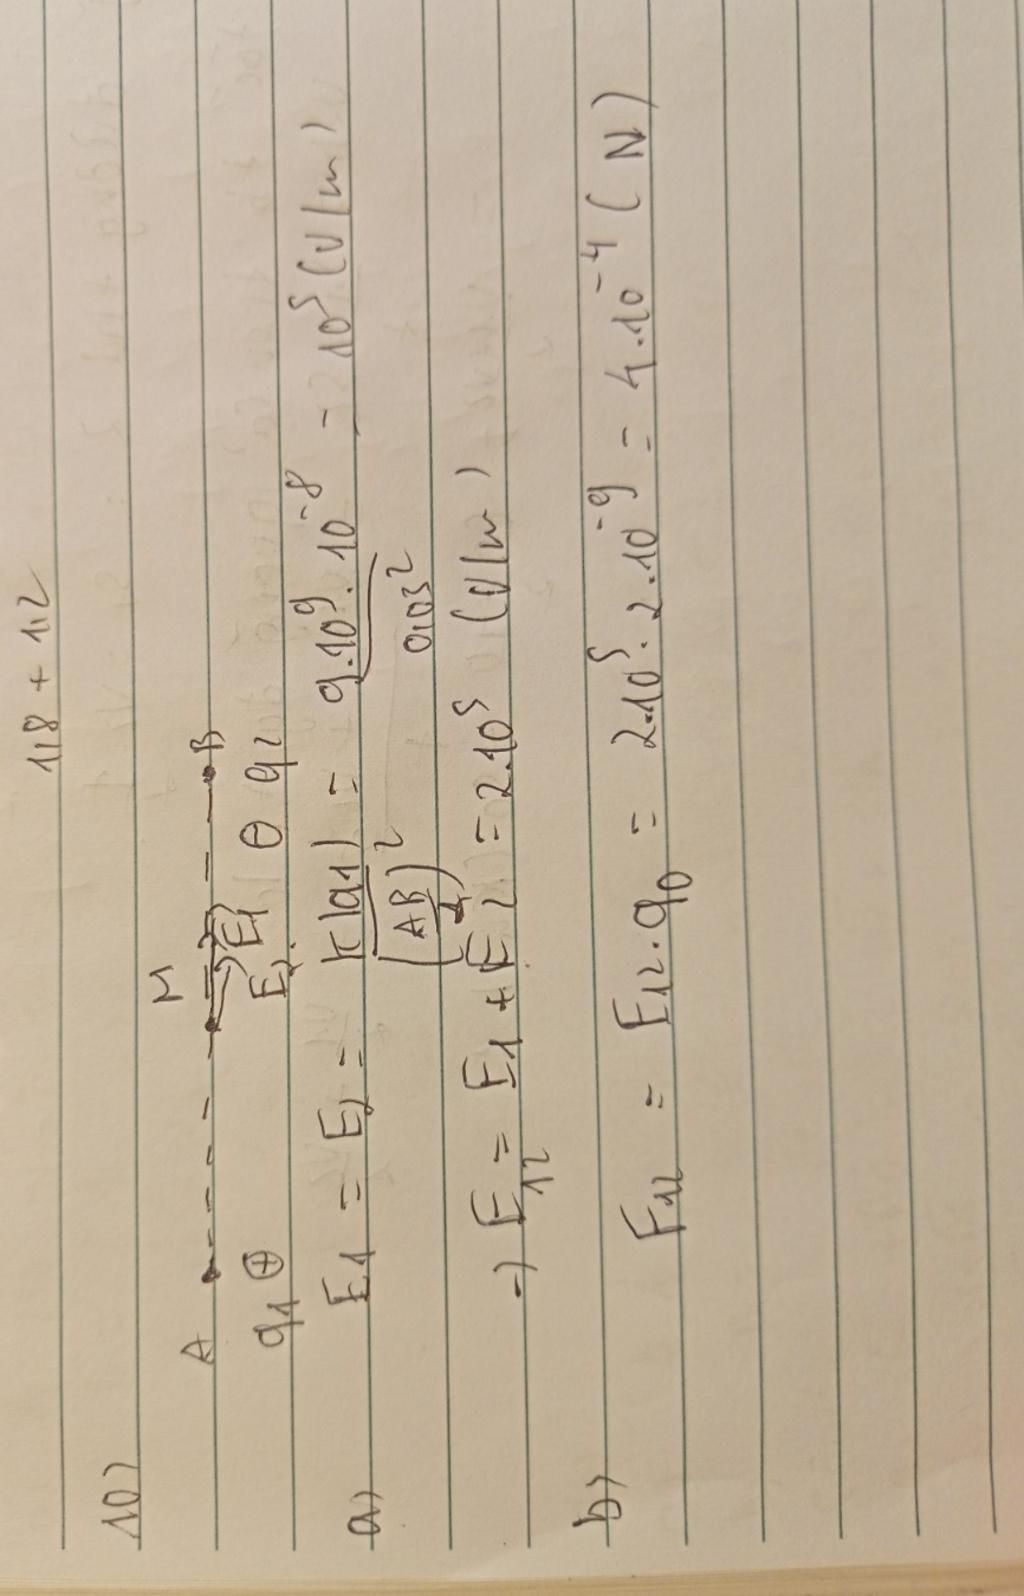 1,8 + 1,2
10)
A M B
q1 ⊕ E2 E1 ⊖ q2
a) E1 = E2 = K|q1| / (AB/2)² = 9.10⁹.10⁻⁸ / 0,03² = 10⁵ (V/m)
→ E12 = E1 + E2 = 2.10⁵ (V/m)
b) F12 = E12.q0 = 2.10⁵.2.10⁻⁹ = 4.10⁻⁴ (N)